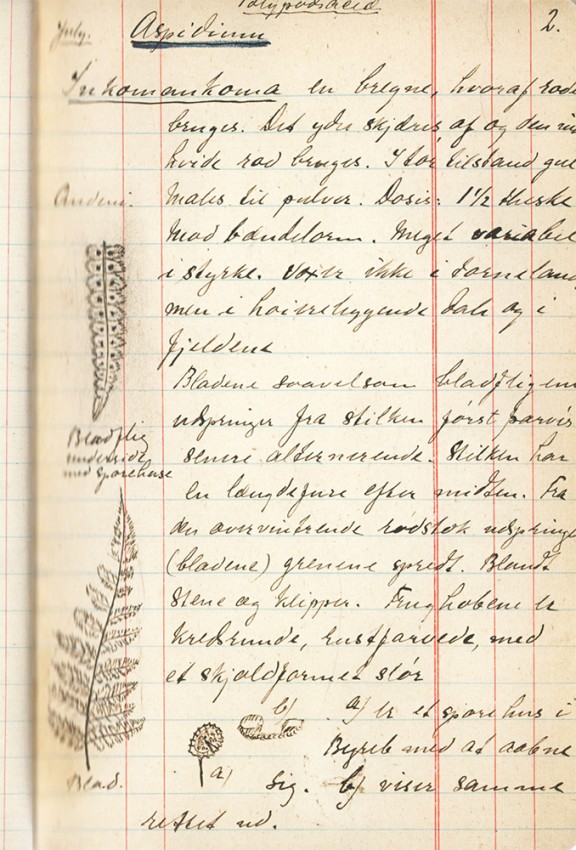 Polypodiaceæ
2.
July. Aspidium
Inkomankoma en bregne, hvoraf rode
bruges. Det ydre skjæres af og den in
hvide rod bruges. I tør tilstand gul
Males til pulver. Dosis: 1 1/2 theske
Mod bændelorm. Meget variabel
i styrke. Voxer ikke i torneland
men i høitreliggende dale og i
fjeldene
Bladene saavelsom bladfligene
udspringer fra stilken først parvis
senere alternerende. Stilken har
en længdefure efter midten. Fra
den overvintrende rodstok udspringe
(bladene) grenene spredt. Blandt
Stene og klipper. Frughobene er
kredsrunde, rustfarvede, med
et skjoldformet slør
Bladflig
underside
med sporehuse
b) a) er et sporehus i
Begreb med at aabne
a) sig. b) viser samme
Blad.
rettet ud.